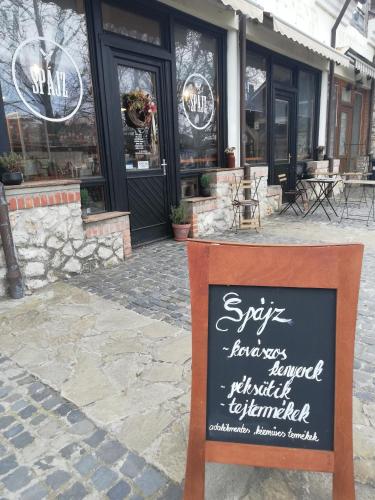 SPÁJZ
SPÁJZ
Spájz
-kovászos
kenyerek
-péksütik
-tejtermékek
adalékmentes, kézműves termékek